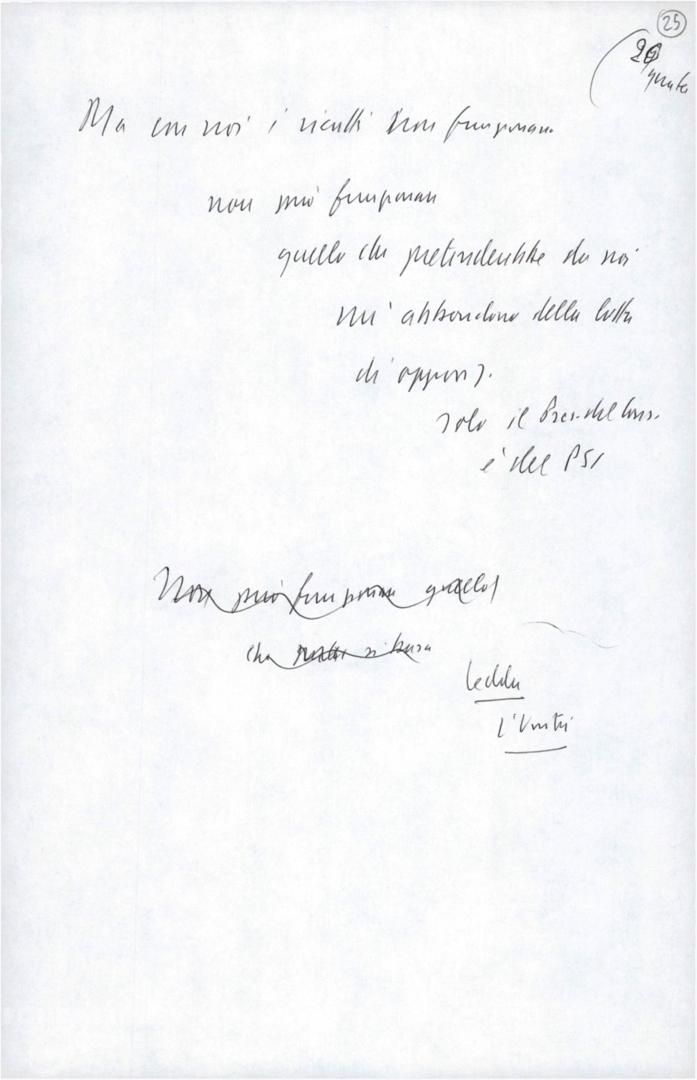 25
Ma con noi i ricatti non funzionano
non può funzionare
quello che pretenderebbe da noi
un' abbandono della lotta
di oppos.
solo il Pres. del Cons.
è del PSI
Non può funzionare quello
che si basa
l'Unità